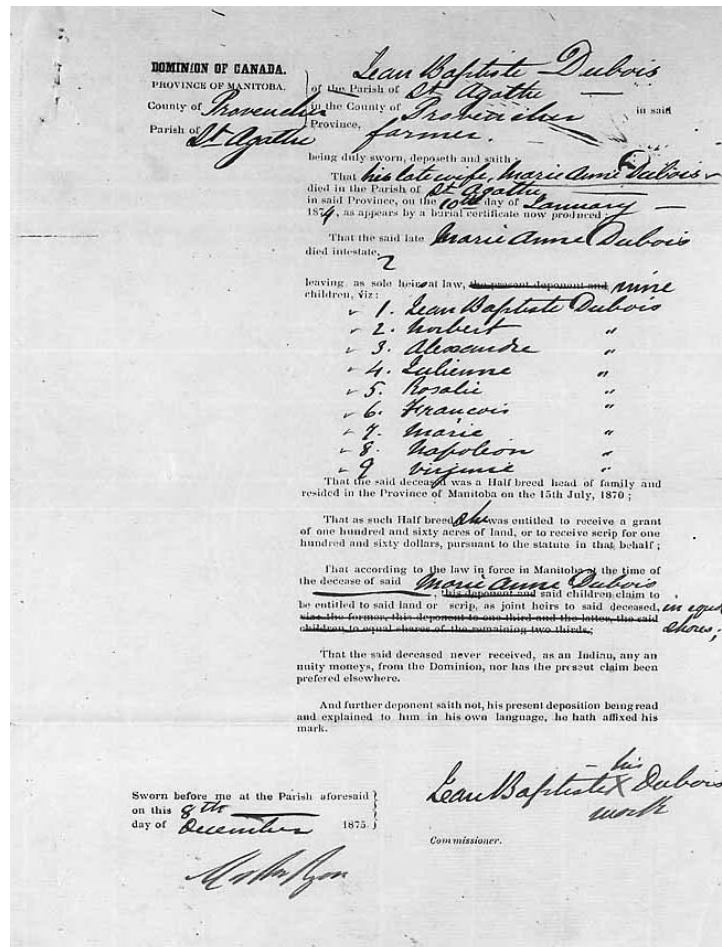 DOMINION OF CANADA.
PROVINCE OF MANITOBA.
County of Provencher
Parish of St Agathe
Jean Baptiste Dubois
of the Parish of St Agathe
in the County of Provencher in said
Province, farmer.
being duly sworn, deposeth and saith:
That his late wife, Marie Anne Dubois
died in the Parish of St Agathe
in said Province, on the 10th day of January
1874, as appears by a burial certificate now produced;
That the said late Marie Anne Dubois
died intestate,
leaving, as sole heirs at law, the present deponent and, nine
children, viz:
1. Jean Baptiste Dubois
2. Norbert "
3. Alexandre "
4. Julienne "
5. Rosalie "
6. Francois "
7. Marie "
8. Napoleon "
9 Virginie "
That the said deceased was a Half breed head of family and
resided in the Province of Manitoba on the 15th July, 1870;
That as such Half breed she was entitled to receive a grant
of one hundred and sixty acres of land, or to receive scrip for one
hundred and sixty dollars, pursuant to the statute in that behalf;
That according to the law in force in Manitoba at the time of
the decease of said Marie Anne Dubois
, this deponent and said children claim to
be entitled to said land or scrip, as joint heirs to said deceased, in equal
vizs the former, this deponent to one third and the latter, the said shares;
children to equal shares of the remaining two thirds,;
That the said deceased never received, as an Indian, any an
nuity moneys, from the Dominion, nor has the present claim been
prefered elsewhere.
And further deponent saith not, his present deposition being read
and explained to him in his own language, he hath affixed his
mark.
his
Jean Baptiste X Dubois
mark
Sworn before me at the Parish aforesaid
on this 8th
day of December 1875
Commissioner.